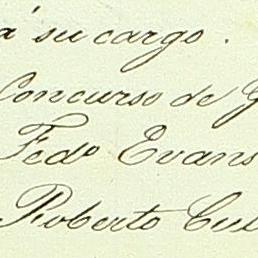 á su cargo.
Concurso de G
Fedº Evans
Roberto Cul